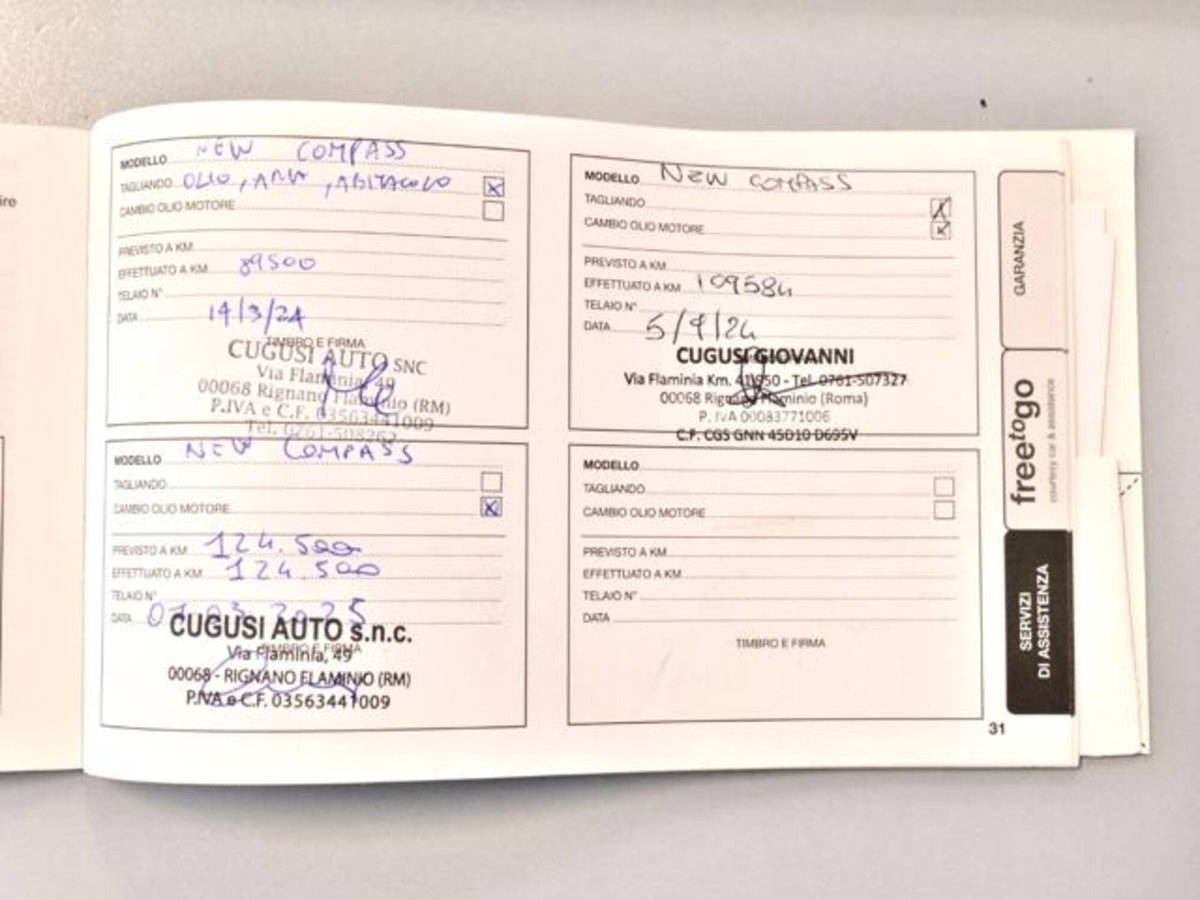 ire
MODELLO NEW COMPASS
TAGLIANDO OLIO, ARIA, ABITACOLO
CAMBIO OLIO MOTORE
PREVISTO A KM
EFFETTUATO A KM 89500
TELAIO N°
DATA 14/3/24
TIMBRO E FIRMA
CUGUSI AUTO SNC
Via Flaminia, 49
00068 Rignano Flaminio (RM)
P.IVA e C.F. 03563441009
Tel. 0761-508262
MODELLO NEW COMPASS
TAGLIANDO
CAMBIO OLIO MOTORE
PREVISTO A KM 124.500
EFFETTUATO A KM 124.500
TELAIO N°
DATA 07.03.2025
CUGUSI AUTO s.n.c.
TIMBRO E FIRMA
Via Flaminia, 49
00068 - RIGNANO FLAMINIO (RM)
P.IVA e C.F. 03563441009
MODELLO NEW COMPASS
TAGLIANDO
CAMBIO OLIO MOTORE
PREVISTO A KM
EFFETTUATO A KM 109584
TELAIO N°
DATA 5/9/24
CUGUSI GIOVANNI
Via Flaminia Km. 41,950 - Tel. 0761-507327
00068 Rignano Flaminio (Roma)
P. IVA 00083771006
C.F. CGS GNN 45D10 D695V
MODELLO
TAGLIANDO
CAMBIO OLIO MOTORE
PREVISTO A KM
EFFETTUATO A KM
TELAIO N°
DATA
TIMBRO E FIRMA
GARANZIA
freetogo
courtesy car & assistance
SERVIZI
DI ASSISTENZA
31